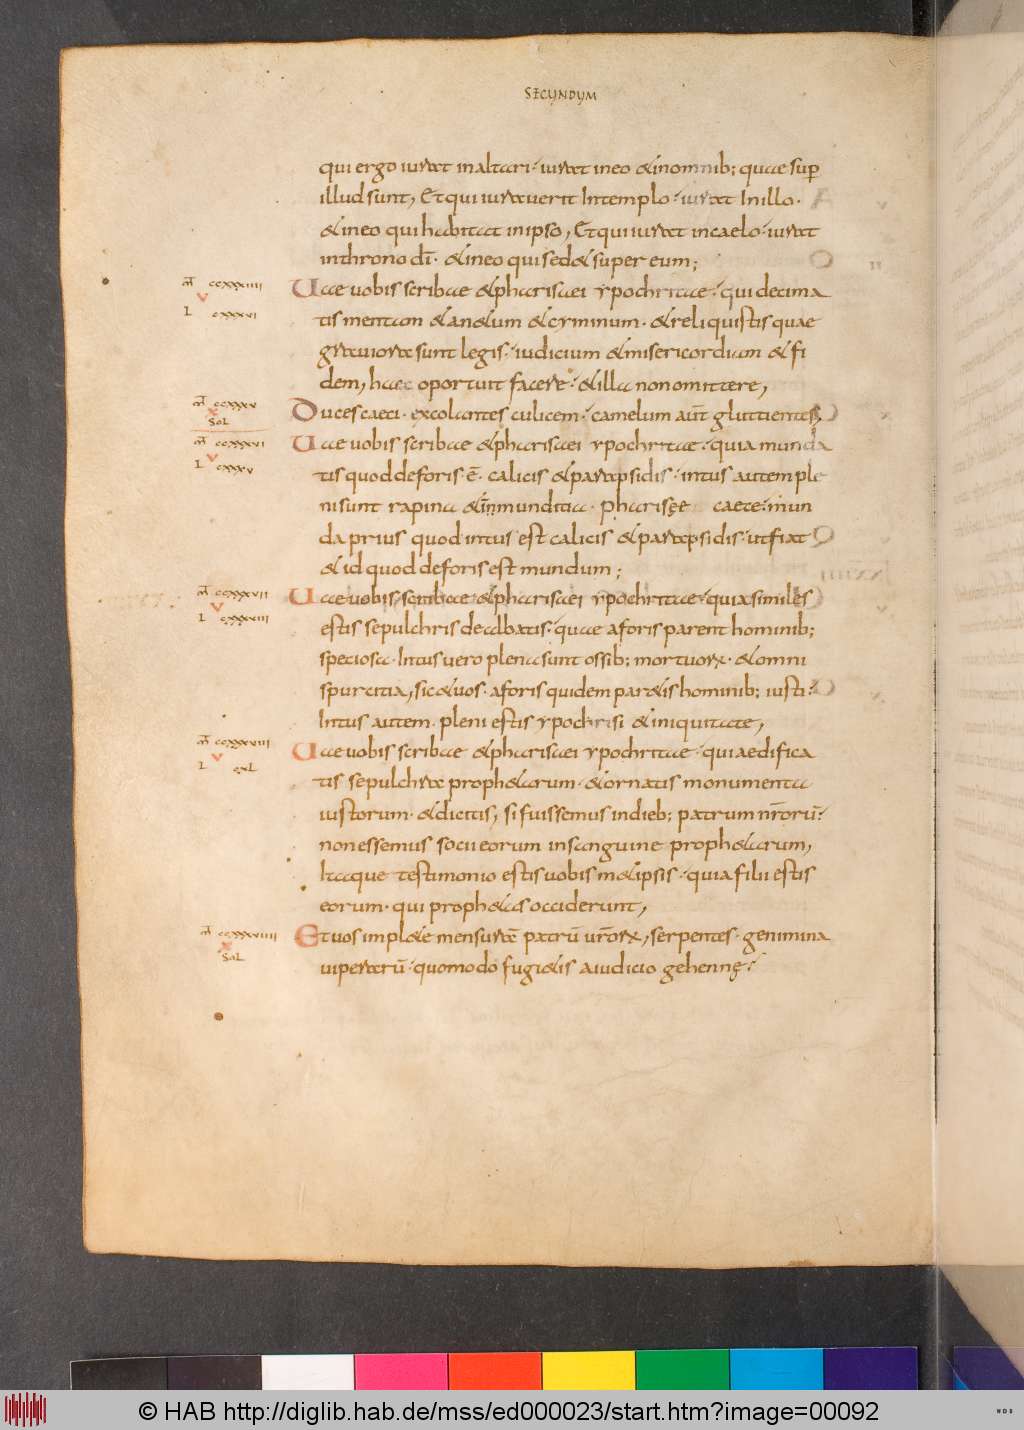 SECUNDUM
qui ergo iurat in altari · iurat in eo & in omnib; quae sup
illud sunt, Et qui iuraverit In templo · iurat In illo ·
& in eo qui habitat in ipso, Et qui iurat in caelo · iurat
in throno dī · & in eo qui sed& super eum;
m̄ ccxxxiiii Uae vobis scribae & pharisaei ypochritae · qui decima
V
L cxxxvi tis mentam & an&um & cyminum · & reliquistis quae
graviora sunt legis · iudicium & misericordiam & fi
dem, haec oportuit facere · & illa non omittere,
m̄ ccxxxv Duces caeci · excolantes culicem · camelum aūt gluttientes,
X
SOL
m̄ ccxxxvi Uae vobis scribae & pharisaei ypochritae · quia munda
V
L cxxxv tis quod deforis · ē · calicis & parapsidis · intus autem ple
ni sunt rapina & inmunditia · Pharisee caece · mun
da prius quod intus est calicis & parapsidis · ut fiat
& id quod deforis est mundum;
m̄ ccxxxvii Uae vobis scribae & pharisaei ypochritae · quia similes
V
L cxxxviii estis sepulchris dealbatis · quae aforis parent hominib;
speciosa · Intus vero plena sunt ossib; mortuorx · & omni
spurcitia, sic & vos · aforis quidem par&is hominib; iusti ·
Intus autem · pleni estis ypochrisi & iniquitate,
m̄ ccxxxviii Uae vobis scribae & pharisaei ypochritae · qui aedifica
V
L cxL tis sepulchra proph&arum · & ornatis monumenta
iustorum · & dicitis, si fuissemus in dieb; patrum nr̄orū ·
non essemus socii eorum in sanguine proph&arum,
Itaque testimonio estis vobism&ipsis · quia filii estis
eorum · qui proph&as occiderunt,
m̄ ccxxxviiii Et vos impl&e mensurā patrū vr̄orx, serpentes · genimina
X
SOL viperarū · quomodo fugi&is a iudicio gehennę ·
© HAB http://diglib.hab.de/mss/ed000023/start.htm?image=00092